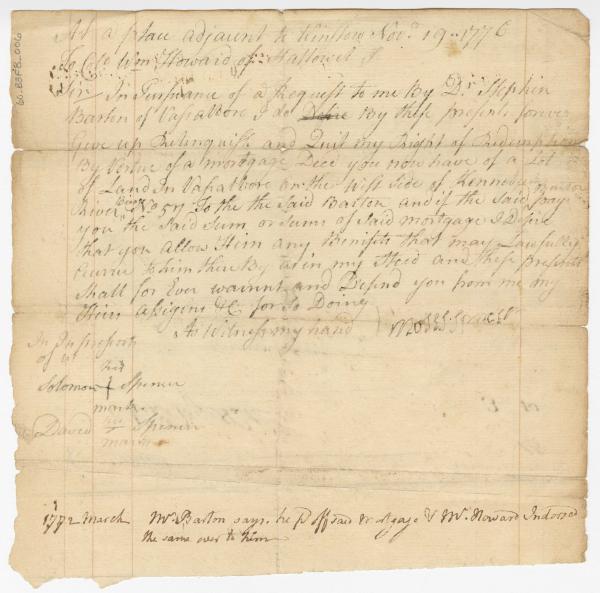 At a place adjacent to Winslow Nov.r 19 - 1776
To Col.o Wm Howard of Hallowel
Sir In Pursuance of a Request to me By Dr. Stephen
Barton of Vasalbore I do Desire By these presents forever
Give up Relinquish and Quit my Right of Redemption
By Vertue of a mortgage Deed you now have of a Lot
of Land In Vasalbore on the West Side of Kennebec
River Being No 57 To the the Said Barton and if the Said Barton pays
you the Said Sum or Sums of Said mortgage I Desire
that you allow Him any Benifits that may Lawfully
accrue to him there By as in my Steed and these presents
Shall for Ever warrent and Defend you from me my
Heirs assigins &c for So Doing
As Witness my hand Moses
In presents
of us
his
Solomon + Spencer
mark
his
David Spencer
mark
1772 March Mr. Barton says he pd off said Mortgage & Mr. Howard Indorsed
the same over to him
60-B3FB-006